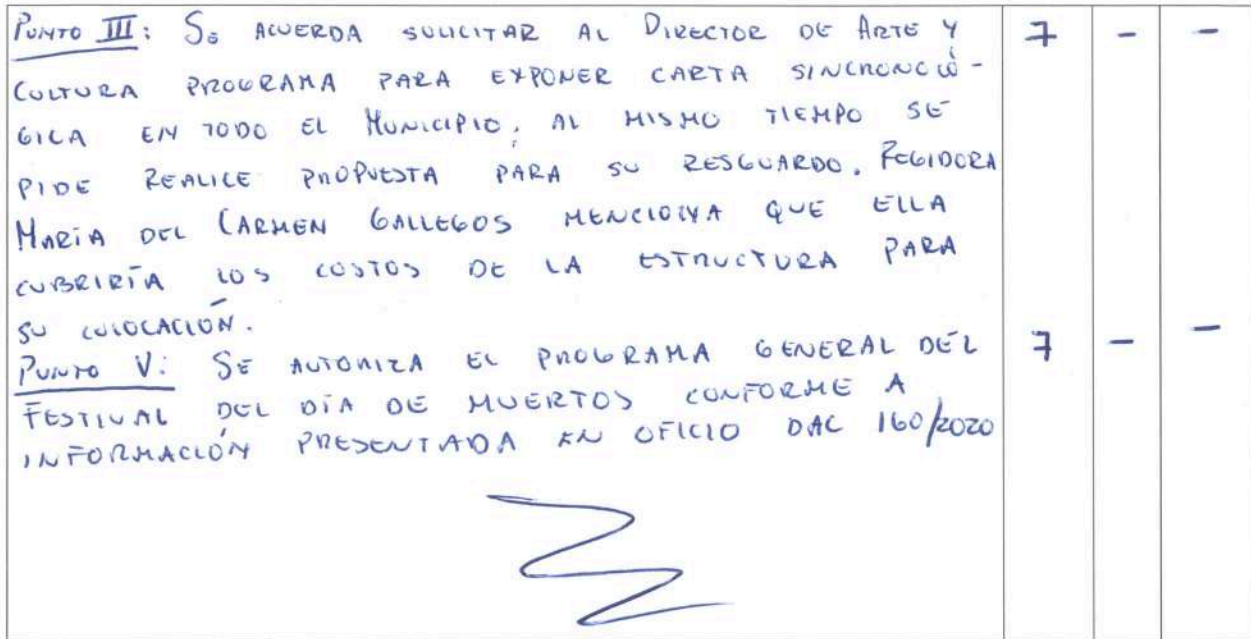 PUNTO III: SE ACUERDA SOLICITAR AL DIRECTOR DE ARTE Y 7 - -
CULTURA PROGRAMA PARA EXPONER CARTA SINCRONOLÓ-
GICA EN TODO EL MUNICIPIO; AL MISMO TIEMPO SE
PIDE REALICE PROPUESTA PARA SU RESGUARDO. REGIDORA
MARÍA DEL CARMEN GALLEGOS MENCIONA QUE ELLA
CUBRIRÍA LOS COSTOS DE LA ESTRUCTURA PARA
SU COLOCACIÓN.
PUNTO V: SE AUTORIZA EL PROGRAMA GENERAL DEL 7 - -
FESTIVAL DEL DÍA DE MUERTOS CONFORME A
INFORMACIÓN PRESENTADA EN OFICIO DAC 160/2020